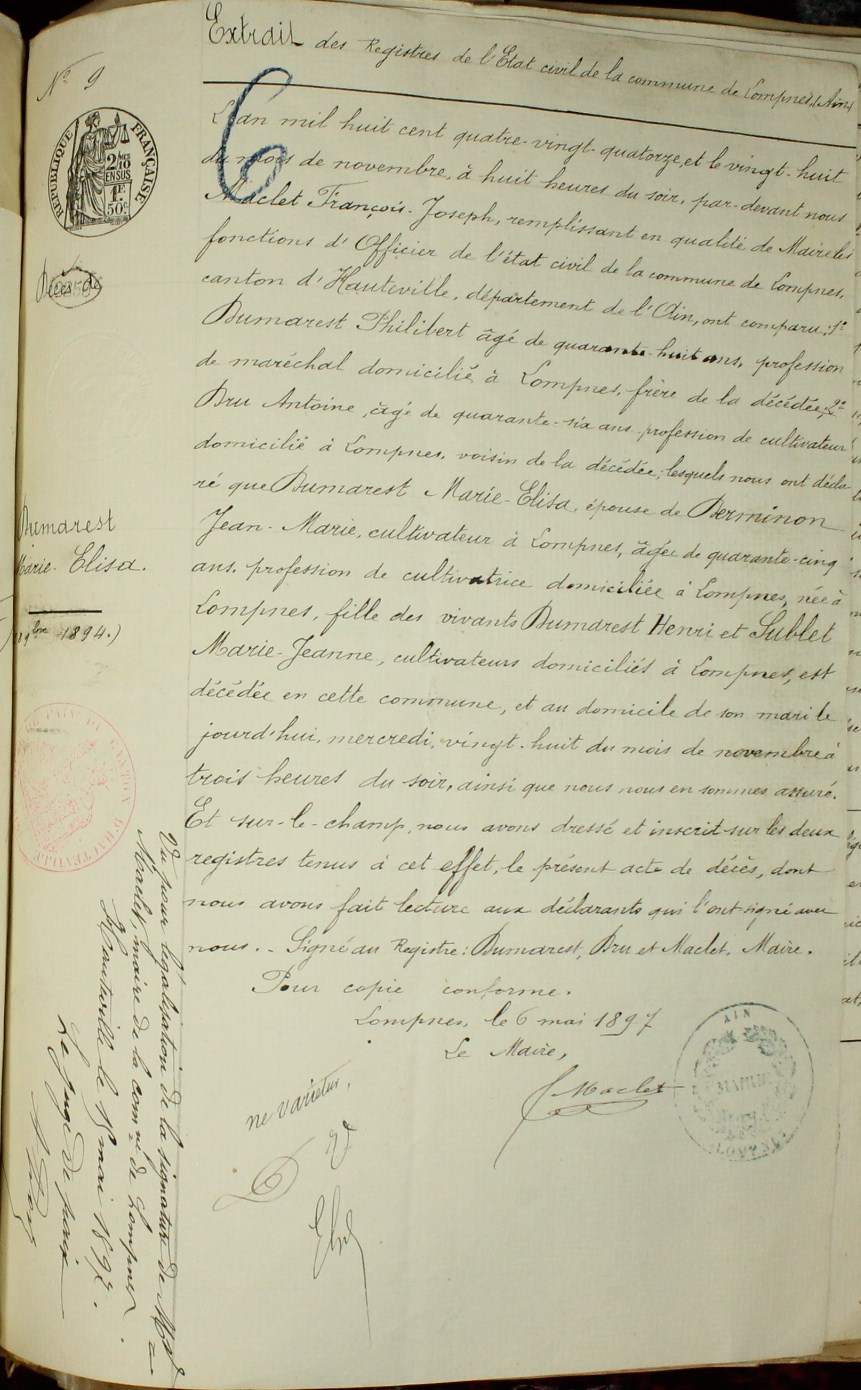 Extrait des Registres de l'Etat civil de la commune de Lompnes (Ain)
Nº 9
RÉPUBLIQUE FRANÇAISE
2/10 EN SUS
1F 50c
Décès de
Dumarest
Marie-Elisa.
1894.)
L'an mil huit cent quatre-vingt-quatorze, et le vingt-huit
du mois de novembre, à huit heures du soir, par-devant nous
Maclet François-Joseph, remplissant en qualité de Maire les
fonctions d'Officier de l'état civil de la commune de Lompnes,
canton d'Hauteville, département de l'Ain, ont comparu: 1º
Dumarest Philibert âgé de quarante-huit ans, profession
de maréchal domicilié à Lompnes, frère de la décédée; 2º
Bru Antoine, âgé de quarante-six ans profession de cultivateur
domicilié à Lompnes, voisin de la décédée; lesquels nous ont décla
ré que Dumarest Marie-Elisa, épouse de Berminon
Jean-Marie, cultivateur à Lompnes, âgée de quarante-cinq
ans, profession de cultivatrice domiciliée à Lompnes, née à
Lompnes, fille des vivants Dumarest Henri et Sublet
Marie-Jeanne, cultivateurs domiciliés à Lompnes, est
décédée en cette commune, et au domicile de son mari le
jourd'hui, mercredi, vingt-huit du mois de novembre à
trois heures du soir, ainsi que nous nous en sommes assuré.
Et sur-le-champ, nous avons dressé et inscrit sur les deux
registres tenus à cet effet, le présent acte de décès, dont
nous avons fait lecture aux déclarants qui l'ont signé avec
nous. - Signé au Registre: Dumarest, Bru et Maclet, Maire.
Pour copie conforme.
Lompnes, le 6 mai 1897
Le Maire,
Maclet
AIN
ne varietur,
CANTON D'HAUTEVILLE
Vu pour légalisation de la signature de Mr
Maclet, maire de la comne de Lompnes.
Hauteville le 15 mai 1897.
Le juge de paix